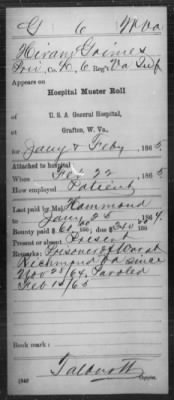 G 6 W Va
Hiram Goines
Priv, Co. K, 6 Reg't Va Inf
Appears on
Hospital Muster Roll
of
U. S. A. General Hospital,
Grafton, W. Va.,
for Jany & Feby, 1865.
Attached to hospital:
When Feb 22, 1865.
How employed Patient
Last paid by Maj. Hammond
to Jany 25, 1864.
Bounty paid $60 00/100; due $240 00/100
Present or absent Present
Remarks: Prisoner of War at
Richmond Va since
Nov 28/64. Paroled
Feb 15/65
Book mark:
Talbott
Copyist.